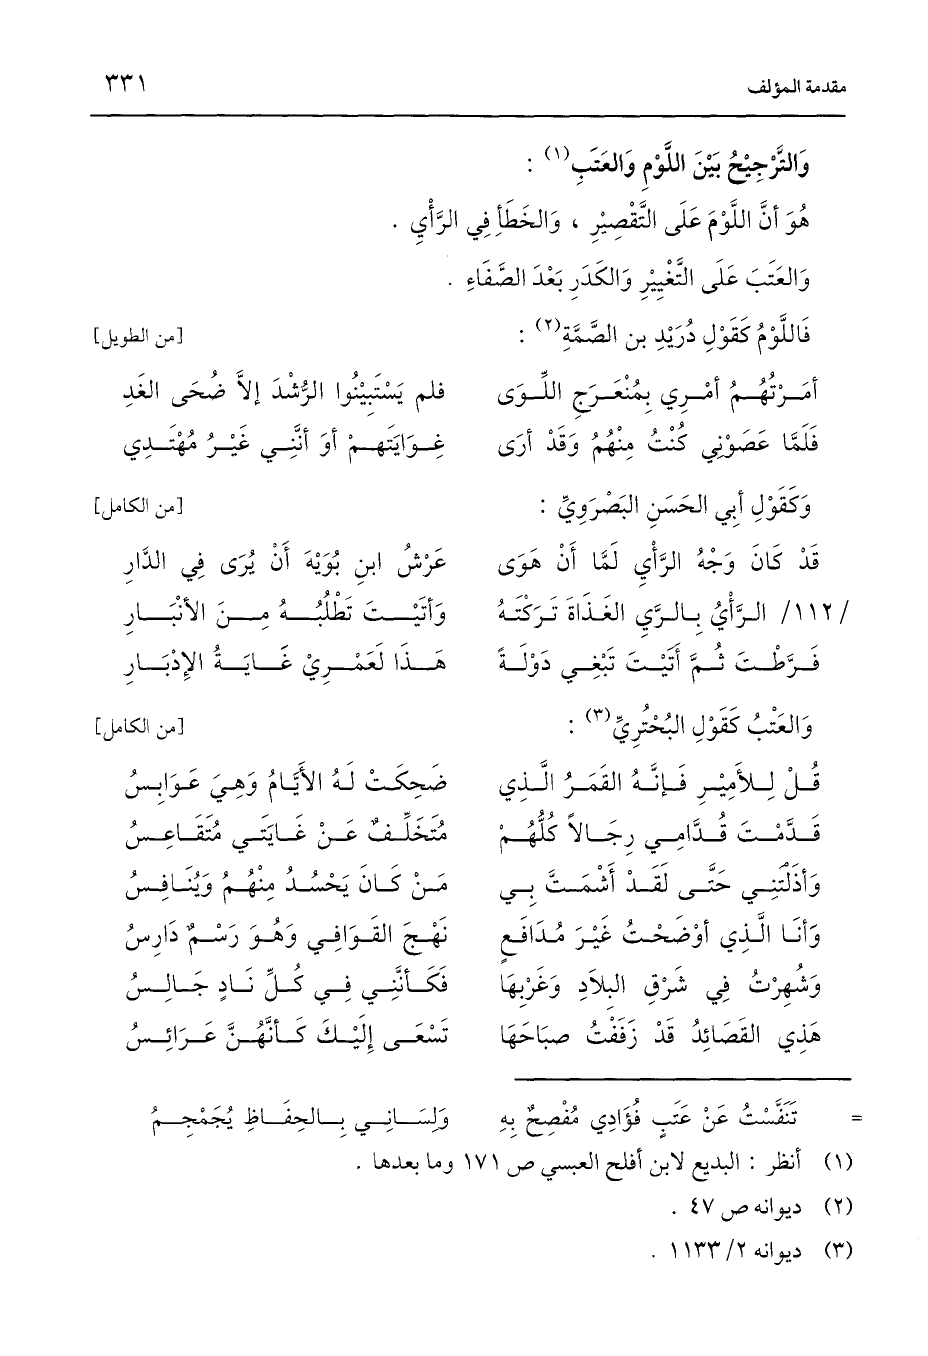 مقدمة المؤلف ٣٣١
وَالتَّرْجِيْحُ بَيْنَ اللَّوْمِ وَالعَتَبِ(١) :
هُوَ أنَّ اللَّوْمَ عَلَى التَّقْصِيْرِ ، وَالخَطَأِ فِي الرَّأْيِ .
وَالعَتَبَ عَلَى التَّغْيِيْرِ وَالكَدَرِ بَعْدَ الصَّفَاءِ .
فَاللَّوْمُ كَقَوْلِ دُرَيْدِ بن الصَّمَّةِ(٢) : [من الطويل]
أمَرْتُهُمُ أمْرِي بِمُنْعَرَجِ اللِّوَى فلم يَسْتَبِيْنُوا الرُّشْدَ إلاَّ ضُحَى الغَدِ
فَلَمَّا عَصَوْنِي كُنْتُ مِنْهُمُ وَقَدْ أرَى غِوَايَتَهِمْ أوَ أنَّنِي غَيْرُ مُهْتَدِي
وَكَقَوْلِ أبِي الحَسَنِ البَصْرَوِيِّ : [من الكامل]
قَدْ كَانَ وَجْهُ الرَّأْيِ لَمَّا أنْ هَوَى عَرْشُ ابنِ بُوَيْهَ أنْ يُرَى فِي الدَّارِ
/١١٢/ الرَّأْيُ بِالرَّيِ الغَدَاةَ تَرَكْتَهُ وَأتَيْتَ تَطْلُبُهُ مِنَ الأنْبَارِ
فَرَّطْتَ ثُمَّ أتَيْتَ تَبْغِي دَوْلَةً هَذَا لَعَمْرِيْ غَايَةُ الإدْبَارِ
وَالعَتْبُ كَقَوْلِ البُحْتُرِيِّ(٣) : [من الكامل]
قُلْ لِلأَمِيْرِ فَإنَّهُ القَمَرُ الَّذِي ضَحِكَتْ لَهُ الأَيَّامُ وَهِيَ عَوَابِسُ
قَدَّمْتَ قُدَّامِي رِجَالاً كُلُّهُمْ مُتَخَلِّفٌ عَنْ غَايَتِي مُتَقَاعِسُ
وَأذَلْتَنِي حَتَّى لَقَدْ أشْمَتَّ بِي مَنْ كَانَ يَحْسُدُ مِنْهُمُ وَيُنَافِسُ
وَأنَا الَّذِي أوْضَحْتُ غَيْرَ مُدَافَعٍ نَهْجَ القَوَافِي وَهُوَ رَسْمٌ دَارِسُ
وَشُهِرْتُ فِي شَرْقِ البِلاَدِ وَغَرْبِهَا فَكَأنَّنِي فِي كُلِّ نَادٍ جَالِسُ
هَذِي القَصَائِدُ قَدْ زَفَفْتُ صبَاحَهَا تَسْعَى إلَيْكَ كَأنَّهُنَّ عَرَائِسُ
= تَنَفَّسْتُ عَنْ عَتَبٍ فُؤَادِي مُفْصِحٌ بِهِ وَلِسَانِي بِالحِفَاظِ يُجَمْجِمُ
(١) أنظر : البديع لابن أفلح العبسي ص ١٧١ وما بعدها .
(٢) ديوانه ص ٤٧ .
(٣) ديوانه ٢/ ١١٣٣ .